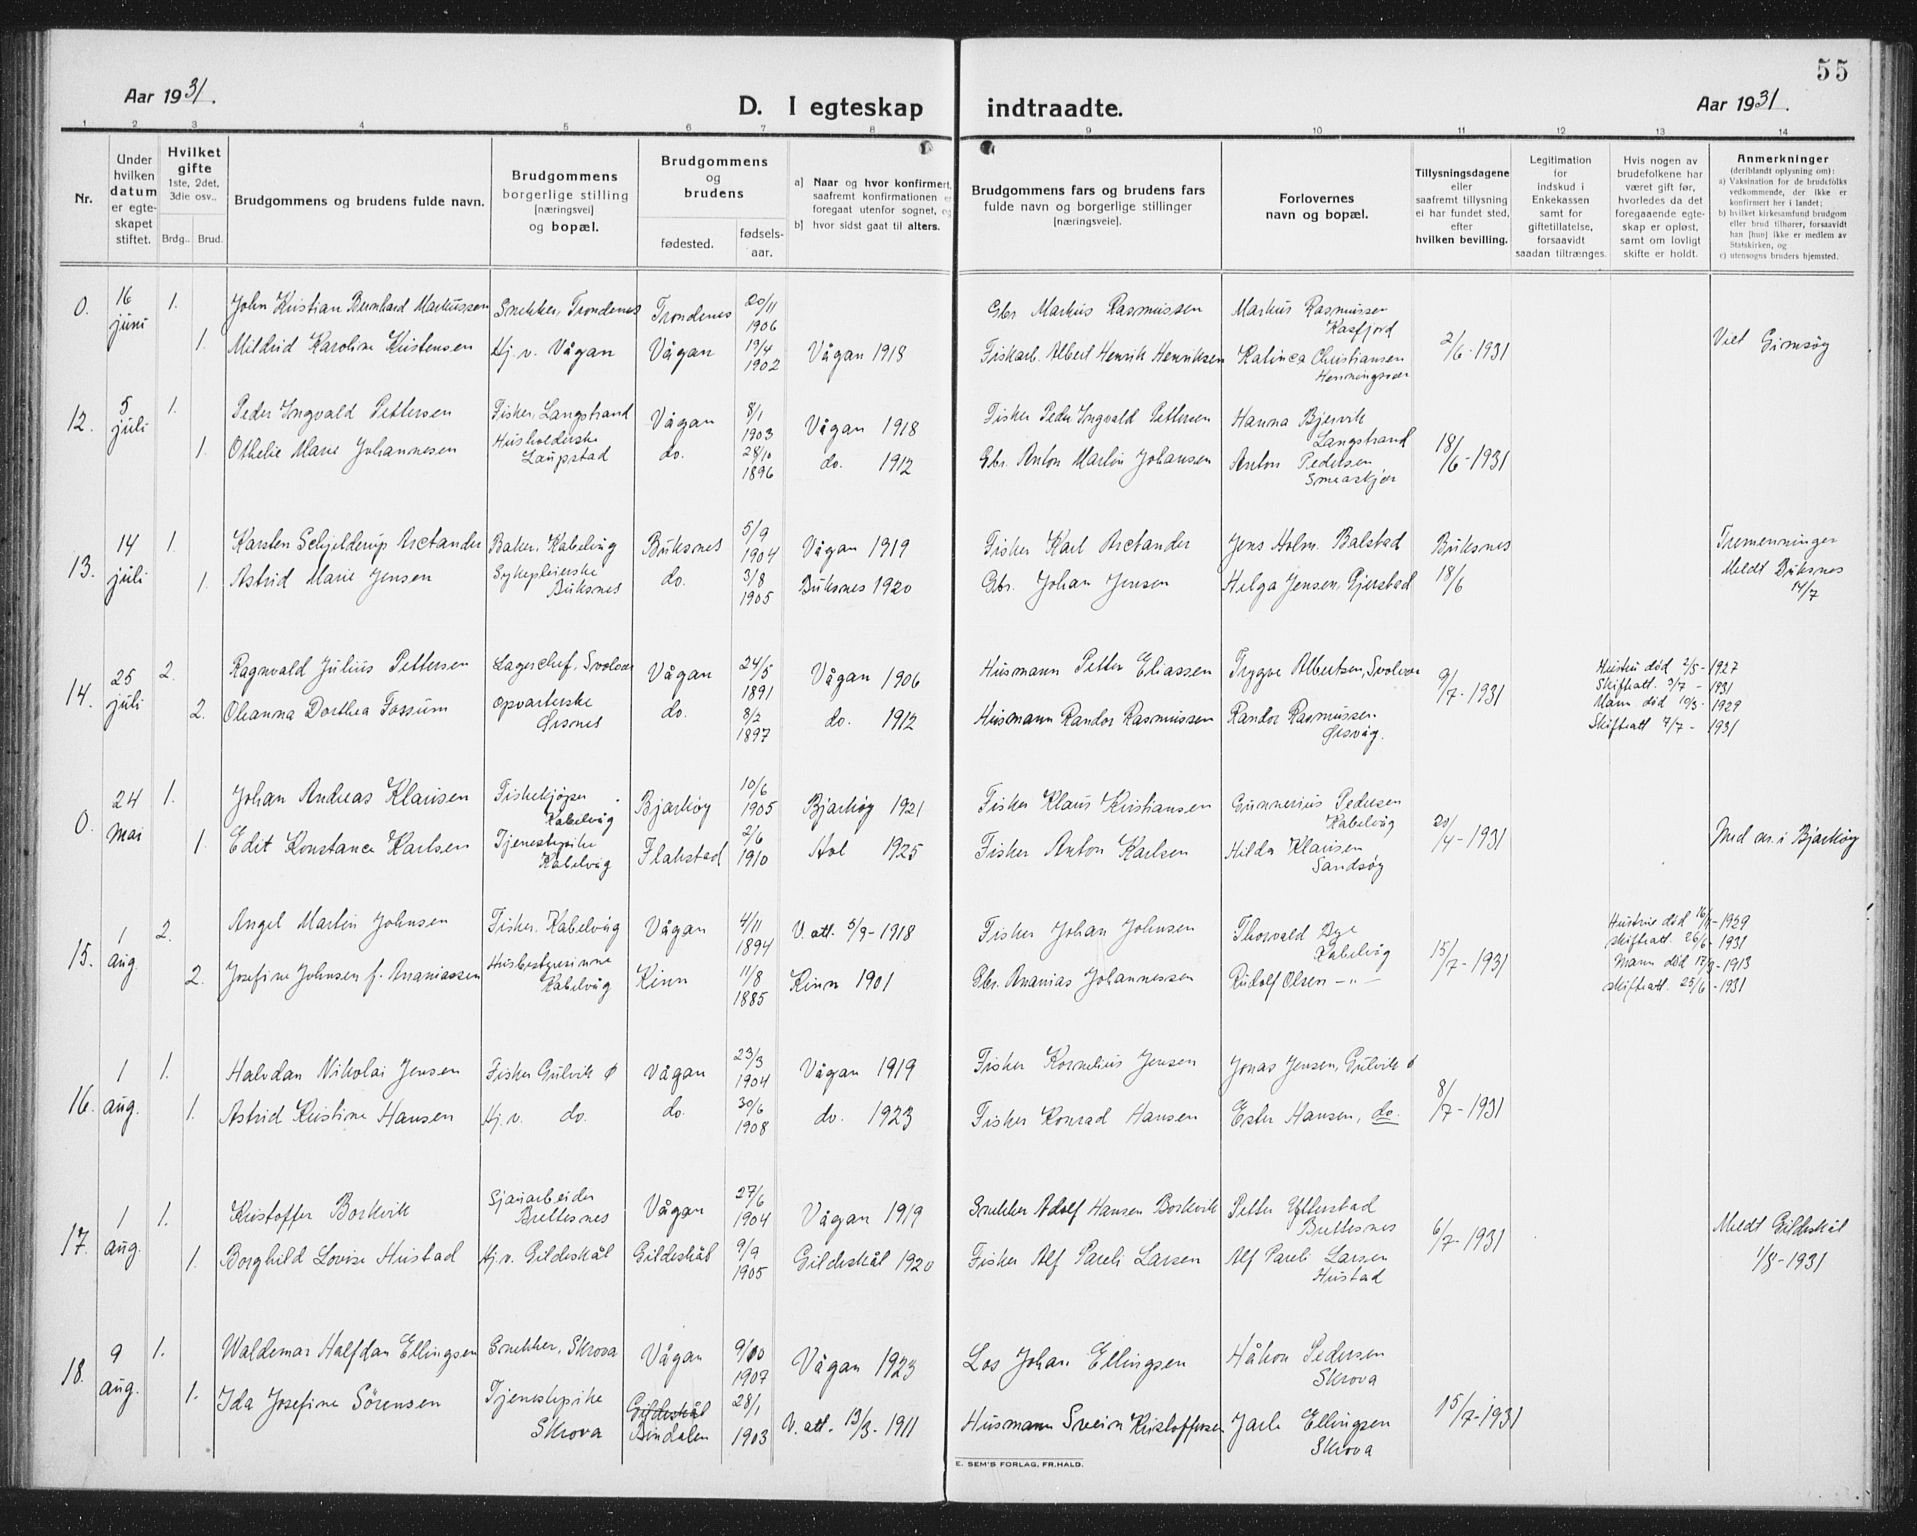 55
Aar 1931.
D. I egteskap indtraadte.
Aar 1931.
1 2 3 4 5 6 7 8 9 10 11 12 13 14
Nr.
Under hvilken datum er egteskapet stiftet.
Hvilket gifte 1ste, 2det, 3die osv.. Brdg.. Brud.
Brudgommens og brudens fulde navn.
Brudgommens borgerlige stilling [næringsvei] og bopæl.
Brudgommens og brudens fødested. fødsels-aar.
a) Naar og hvor konfirmert, saafremt konfirmationen er foregaat utenfor sognet, og
b) hvor sidst gaat til alters.
Brudgommens fars og brudens fars fulde navn og borgerlige stillinger [næringsveie].
Forlovernes navn og bopæl.
Tillysningsdagene eller saafremt tillysning ei har fundet sted, efter hvilken bevilling.
Legitimation for indskud i Enkekassen samt for giftetillatelse, forsaavidt saadan tiltrænges.
Hvis nogen av brudefolkene har været gift før, hvorledes da det foregaaende egteskap er opløst, samt om lovlig skifte er holdt.
Anmerkninger (deriblandt oplysning om):
a) Vaksination for de brudefolks vedkommende, der ikke er konfirmert her i landet;
b) hvilket kirkesamfund brudgom eller brud tilhører, forsaavidt han [hun] ikke er medlem av Statskirken, og
c) utensogns bruders hjemsted.
0. 16 juni 1. John Kristian Bernhard Markussen Snekker, Trondenes Trondenes 20/11 1906 Gbr Markus Rasmussen Markus Rasmussen Kasfjord 2/6-1931 Viet Gimsøy
1. Mildrid Karoline Kristensen Hj.v. Vågan Vågan 19/4 1902 Vågan 1918 Fiskarb. Albert Henrik Henriksen Katinca Christiansen Henningsvær
12. 5 juli 1. Peder Ingvald Pettersen Fisker, Langstrand Vågan 8/1 1903 Vågan 1918 Fisker Peder Ingvald Pettersen Hanna Bjervik Langstrand 18/6-1931
1. Othelie Marie Johannesen Husholderske Laupstad do. 28/10 1896 do. 1912 Gbr. Anton Martin Johansen Anton Pedersen Smeaskjær
13. 14 juli 1. Karsten Schjelderup Arctander Baker, Kabelvåg Buksnes 5/9 1904 Vågan 1919 Fisker Karl Arctander Jens Holm. Balstad Buksnes 18/6 Tremenninger Meldt Buksnes 14/7
1. Astrid Marie Jensen Sykepleierske Buksnes do. 3/8 1905 Buksnes 1920 Gbr. Johan Jensen Helga Jensen, Gjerstad
14. 25 juli 2. Ragnvald Julius Pettersen Lagerchef, Svolvær Vågan 24/5 1891 Vågan 1906 Husmann Petter Eliassen Trygve Albertsen, Svolvær 9/7-1931 Hustru død 2/5-1927 Skifteatt. 3/7-1931
2. Ohanna Dorthea Fossum Opvarterske Ørsnes do. 8/2 1897 do. 1912 Husmann Randor Rasmussen Randor Rasmussen Ørsvåg. Mann død 10/3-1929 Skifteatt 7/7-1931
0. 24 mai 1. Johan Andreas Klausen Fiskekjøper Kabelvåg Bjarkøy 10/6 1905 Bjarkøy 1921 Fisker Klaus Kristiansen Gunnerius Pedersen Kabelvåg 20/4-1931 Med an. i Bjarkøy
1. Edit Konstance Karlsen Tjenestepike Kabelvåg Flakstad 2/6 1910 Hol 1925 Fisker Anton Karlsen Hilda Klausen Sandsøy
15. 1 aug. 2. Angel Martin Johnsen Fisker. Kabelvåg Vågan 4/11 1894 V. att. 5/9-1918 Fisker Johan Johnsen Thorvald Dye Kabelvåg 15/7-1931 Hustrue død -1929 skifteatt. 26/6-1931
2. Josefine Johnsen f. Ananiassen Husbestyrerinne Kabelvåg Kinn 11/8 1885 Kinn 1901 Gbr. Ananias Johannessen Rudolf Olsen -"- Mann død 17/9-1913 skifteatt. 23/6-1931
16. 1 aug. 1. Halvdan Nikolai Jensen Fisker Gulvik ø Vågan 23/3 1904 Vågan 1919 Fisker Kornelius Jensen Jonas Jensen, Gulvik ø 8/7-1931
1. Astrid Kristine Hansen Hj.v. do. do. 30/6 1908 do. 1923 Fisker Konrad Hansen Ester Hansen, do.
17. 1 aug. 1. Kristoffer Borkvik Sjauarbeider Brettesnes Vågan 27/6 1904 Vågan 1919 Snekker Adolf Hansen Borkvik Petter Ytterstad Brettesnes 6/7-1931 Meldt Gildeskål 1/8-1931
1. Borghild Lovise Hustad Hj.v. Gildeskål Gildeskål 9/9 1905 Gildeskål 1920 Fisker Alf Pareli Larsen Alf Pareli Larsen Hustad
18. 9 aug. 1. Waldemar Halfdan Ellingsen Snekker, Skrova Vågan 9/10 1907 Vågan 1923 Los Johan Ellingsen Håkon Pedersen Skrova 15/7-1931
1. Ida Josefine Sörensen Tjenestepike Skrova Gildeskål Bindalen 28/1 1903 V. att. 13/3-1911 Husmann Svein Kristoffersen Jarle Ellingsen Skrova
E. SEM'S FORLAG, FR.HALD.